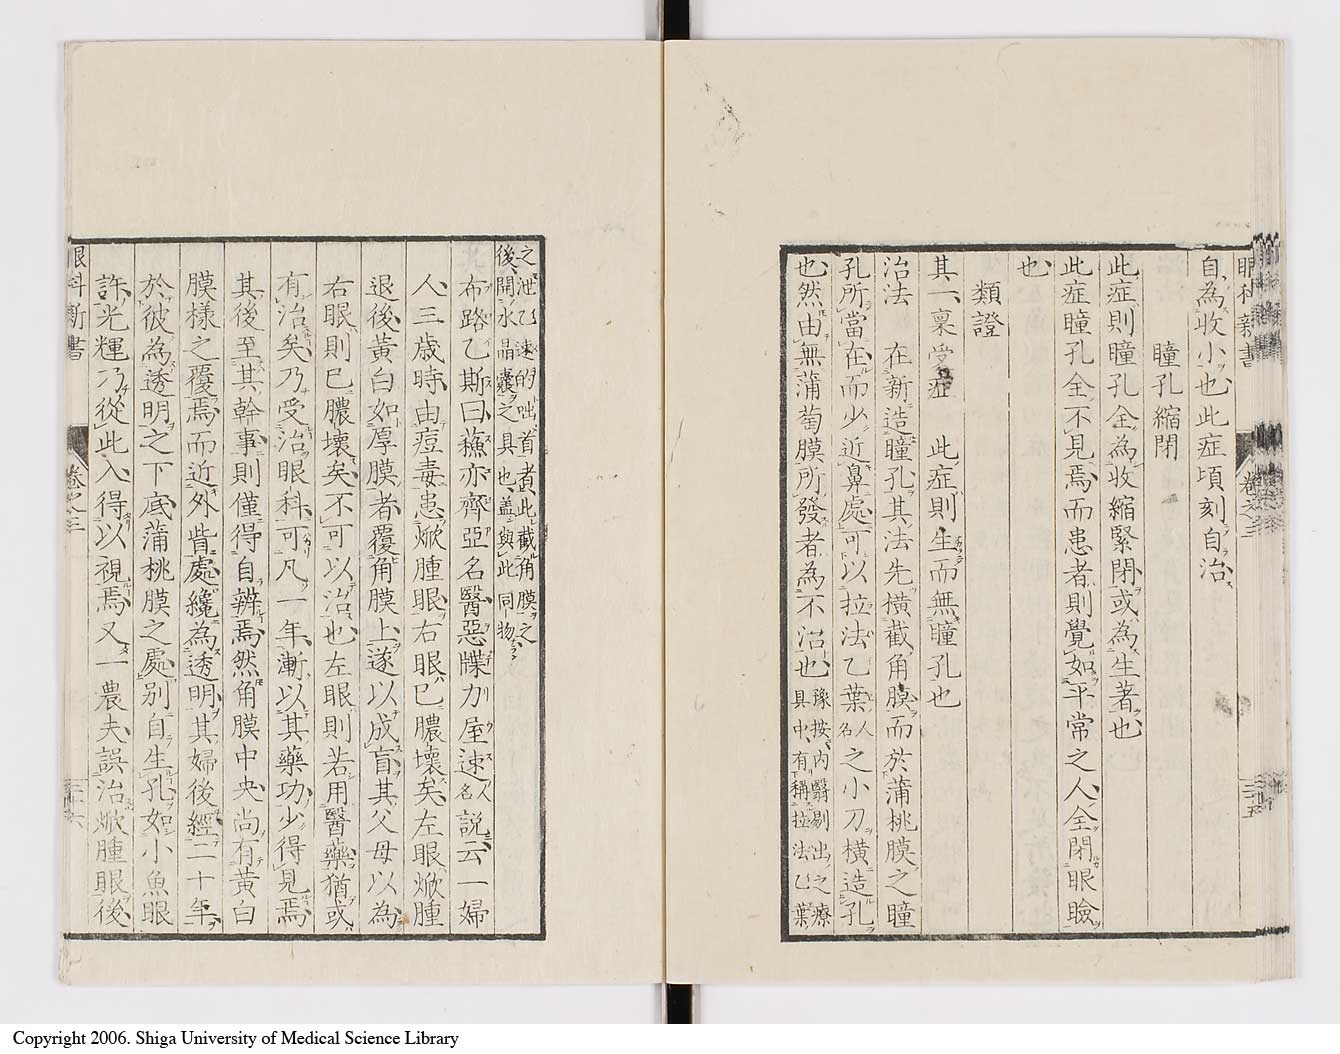 眼科新書
卷之三
自為收小也此症頃刻自治
瞳孔縮閉
此症則瞳孔全為收縮緊閉或為生著也
此症瞳孔全不見焉而患者則覺如平常之人全閉眼瞼
也
類證
其一稟受症 此症則生而無瞳孔也
治法 在新造瞳孔其法先橫截角膜而於蒲桃膜之瞳
孔所當在而少近鼻處可以拉法乙葉人名之小刀橫造孔
也然由無蒲萄膜所發者為不治也豫按內翳剔出之療
具中有稱拉法乙葉
之泄乙速的咄首者此截角膜之
後開水晶囊之具也蓋與此同物
布路乙斯曰蘓亦齊亞名醫惡牒力屋速人名說云一婦
人三歲時由痘毒患焮腫眼右眼已膿壞矣左眼焮腫
退後黃白如厚膜者覆角膜上遂以成盲其父母以為
右眼則已膿壞矣不可以治也左眼則若用醫藥猶或
有治矣乃受治眼科可凡一年漸以其藥功少得見焉
其後至其幹事則僅得自辨焉然角膜中央尚有黃白
膜樣之覆焉而近外眥處纔為透明其婦後經二十年
於彼為透明之下底蒲桃膜之處別自生孔如小魚眼
許光輝乃從此入得以視焉又一農夫誤治焮腫眼後
眼科新書
卷之三
二十六
Copyright 2006. Shiga University of Medical Science Library